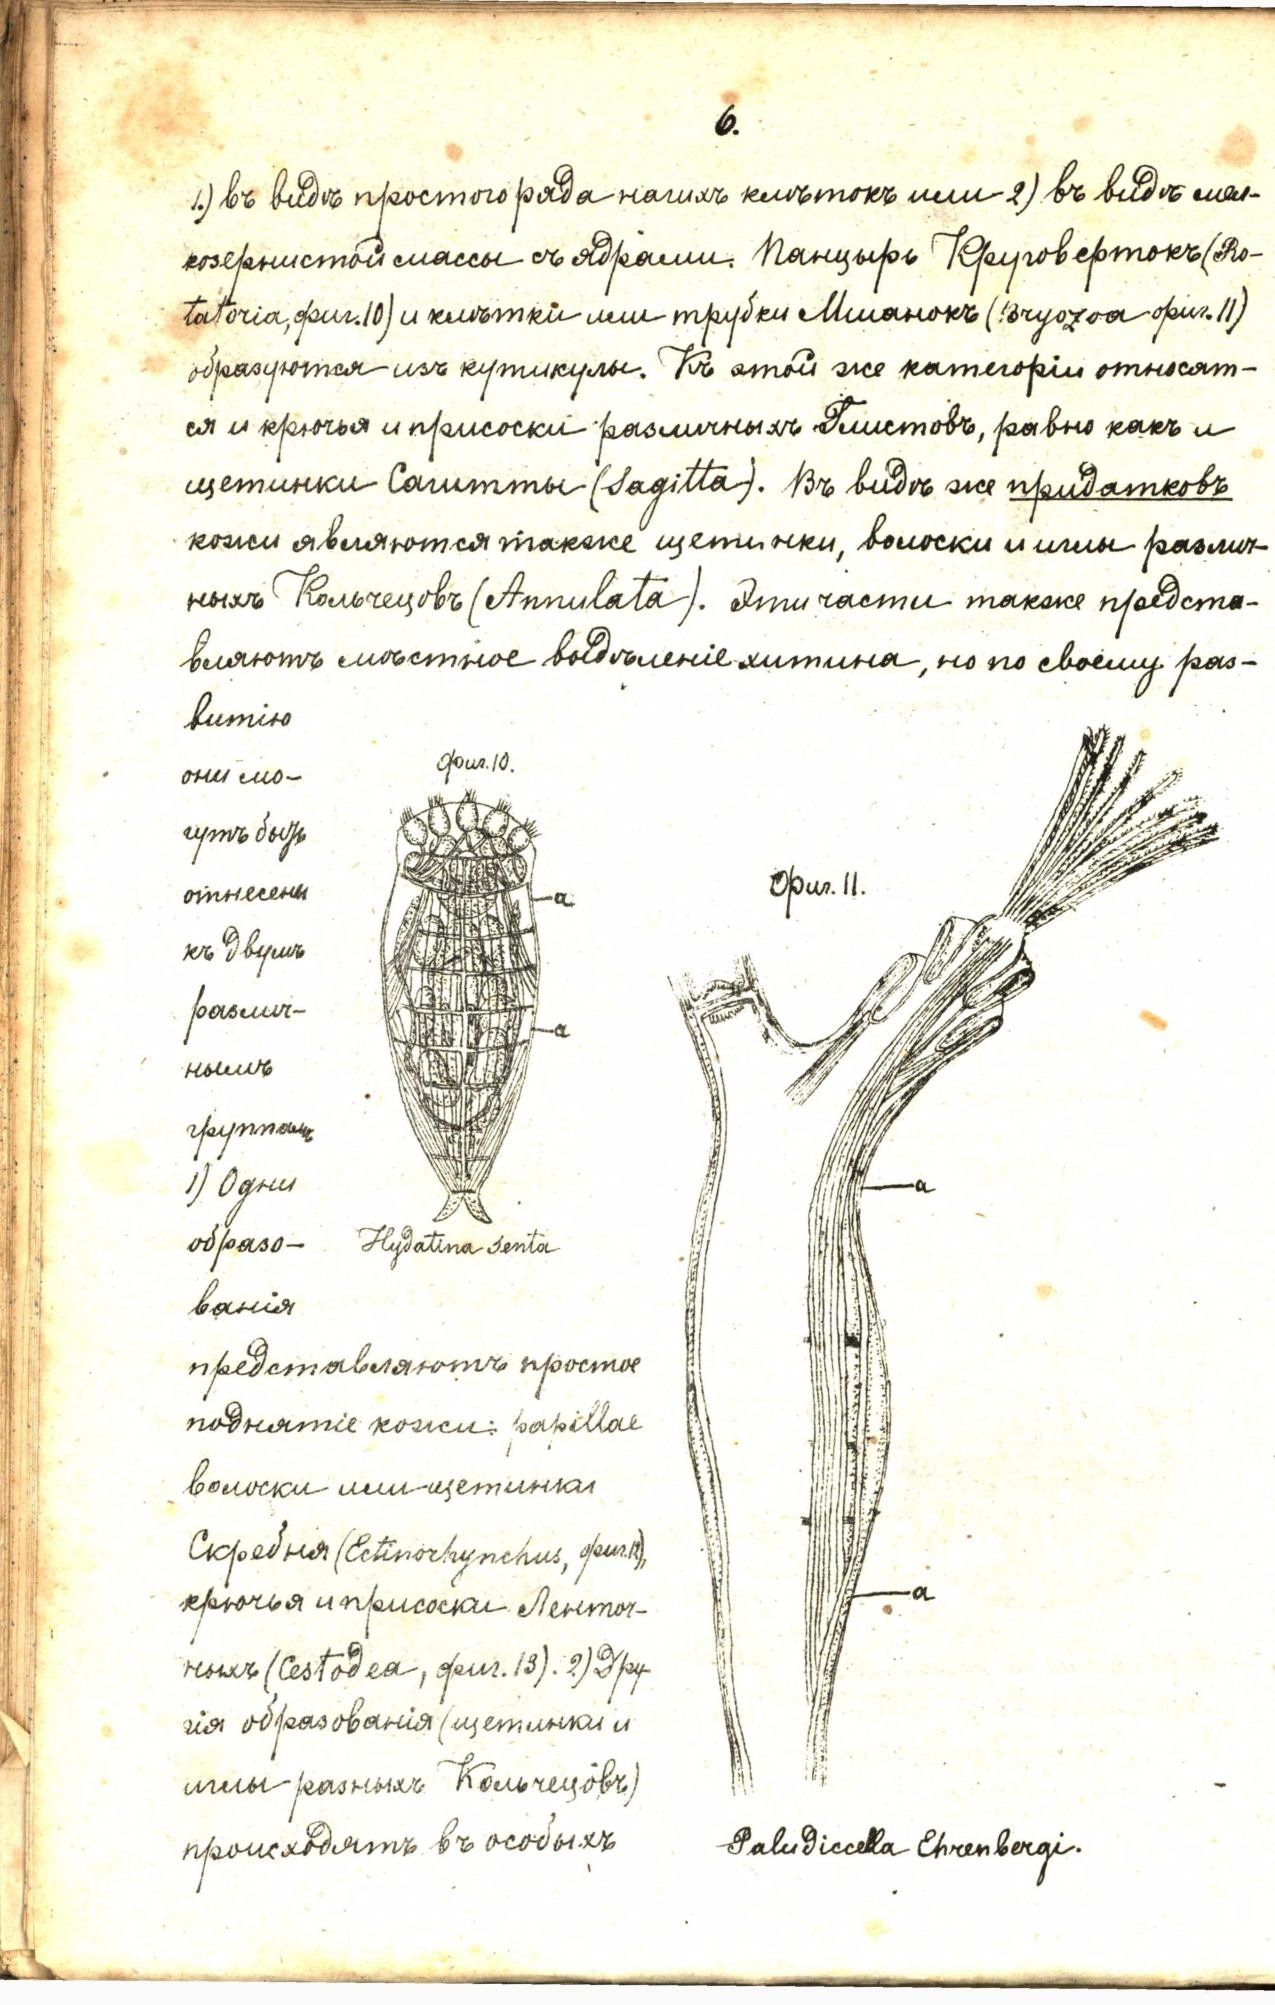 6.
1.) въ видѣ простого ряда нагихъ клѣтокъ или 2) въ видѣ мел-
козернистой массы съ ядрами. Панцырь Круговертокъ (Ro-
tatoria, фиг. 10) и клѣтки или трубки Мшанокъ (Bryozoa фиг. 11)
образуются изъ кутикулы. Къ этой же категоріи относят-
ся и крючья и присоски различныхъ Глистовъ, равно какъ и
щетинки Сагитты (Sagitta). Въ видѣ же придатковъ
кожи являются также щетинки, волоски и иглы различ-
ныхъ Кольчецовъ (Annulata). Эти части также предста-
вляютъ мѣстное выдѣленіе хитина, но по своему раз-
витію
они мо-
гутъ быть
отнесены
къ двумъ
различ-
нымъ
группамъ
1) Одни
образо-
ванія
представляютъ простое
поднятіе кожи: papillae
волоски или щетинки
Скребня (Echinorhynchus, фиг. 12),
крючья и присоски Ленточ-
ныхъ (Cestodea, фиг. 13). 2) Дру
гія образованія (щетинки и
иглы разныхъ Кольчецовъ)
происходятъ въ особыхъ
Фиг. 10.
a
a
Hydatina senta
Фиг. 11.
a
a
Paludiccella Ehrenbergi.